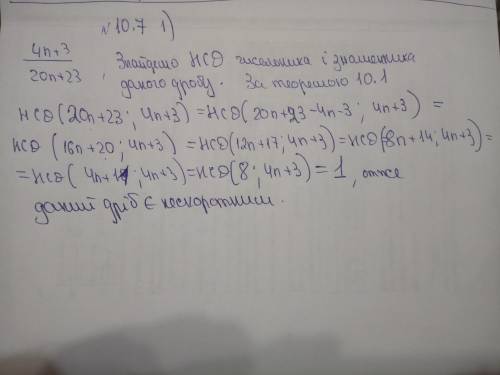 № 10.7 1)
4n+3
20n+23 , Знайдемо НСД чисельника і знаменника
даного дробу. За теоремою 10.1
НСД(20n+23; 4n+3) = НСД(20n+23-4n-3; 4n+3) =
НСД (16n+20; 4n+3) = НСД(12n+17; 4n+3) = НСД(8n+14; 4n+3) =
= НСД(4n+11; 4n+3) = НСД(8; 4n+3) = 1, отже
даний дріб є нескоротним.